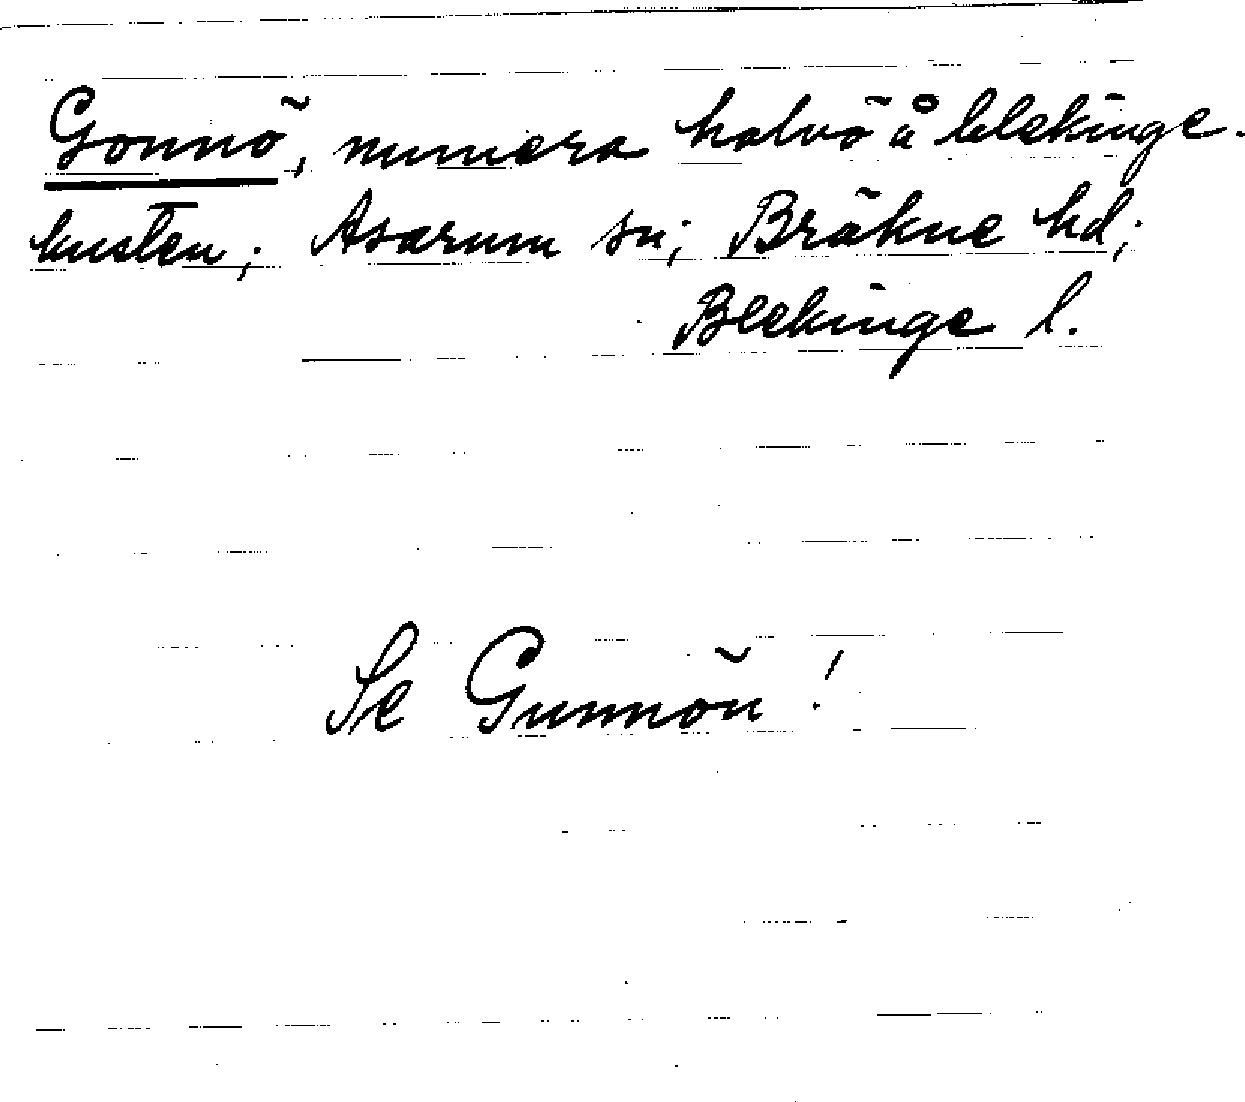 Gonnö, numera halvö å blekinge-
kusten; Asarum sn; Bräkne hd;
Blekinge l.
Se Gunnön!